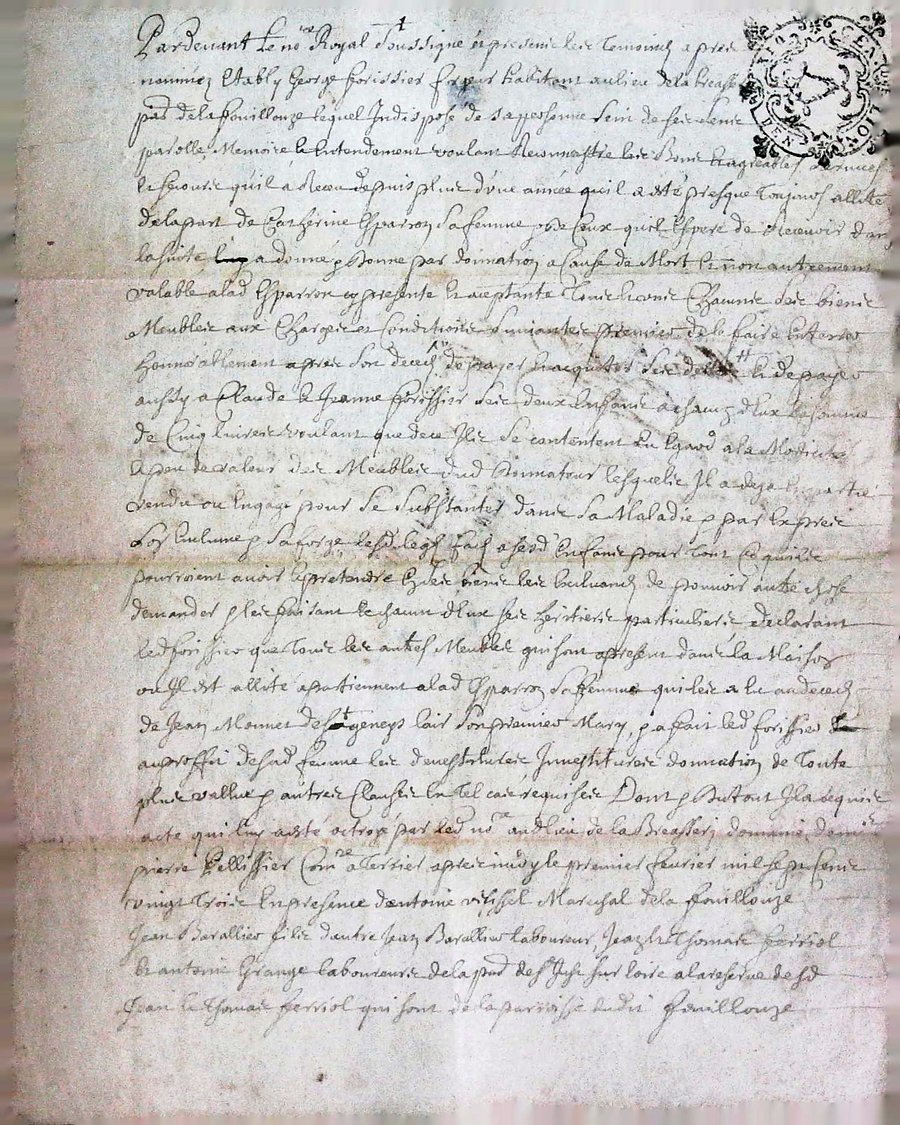 Pardevant le no.re Royal soussigné et presents les temoins apres
nommez Estably George forissier habitant au lieu de la breasse
de la fouillouze lequel Indisposé de sa personne sein de ses sens
parolle Memoire et Entendement voulant Reconnaistre les Bons et agreables services
et secours qu'il a Receu depuis plus d'une année qu'il a esté presque Toujours allité
de la part de Catherine Esparron sa femme ceux qu'il Espere de Recevoir dans
la suite a donné p donne par donnation a Cause de Mort et non autrement
valable a lad Esparron cy presente et acceptante Tous Chacuns ses biens
Meubles aux Charges et Conditions suivantes premier de le faire Enterrer
honnorablement apres son deces de payer et acquiter ses et de payer
aussy a Claude et Jeanne forissier ses deux Enfans a chacun d'Eux la somme
de Cinq livres voulant que de ce Ils se contentent Eu Egard a la Modicité
et peu de valeur des Meubles dud donnateur lesquels Il a deja En partie
vendu ou Engagé pour se substanter dans sa Maladie p par Expres
sa forge lesd legs faits a sesd Enfans pour Tout ce qu'ils
pourroient avoir et pretendre En ses biens les de pouvoir autre chose
demander p les faisant Et chacun d'Eux ses heritiers particuliers declarant
led forissier que Tous les autres Meubles qui sont apresent dans la Maison
ou Il est allité apartiennent a lad Esparron sa femme qui les a Eu au deces
de Jean Monnet de St geneys lair son premier Mary, p a fait led forissier
au proffit de sad femme les devestitures Investitures donnation de Toute
plus vallue p autres Clauses En Tel cas requises Dont p du tout Il a requis
acte qui luy a esté octroyé par led no.re aud lieu de la Breassery domaine de
pierre Pellissier Com.re a Terrier apres midy le premier fevrier mil sept cens
vingt Trois En presence d'antoine Marechal de la fouillouze
Jean Barallier fils d'autre Jean Barallier laboureur, Jean et Thomas ferriol
et antoine Grange laboureurs de la de St Just sur loire a la reserve desd
Jean et Thomas ferriol qui sont de la parroisse dudit fouillouze